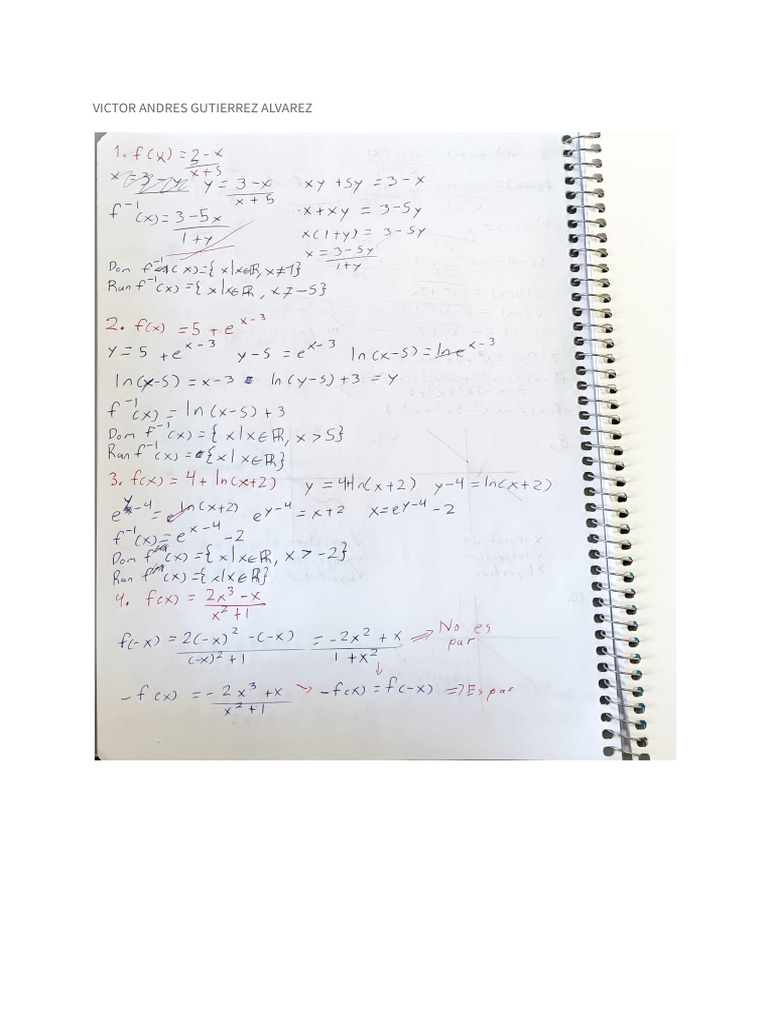 VICTOR ANDRES GUTIERREZ ALVAREZ
1. f(x) = 3-x / x+5
y = 3-x / x+5   xy + 5y = 3-x
f⁻¹(x) = 3-5x / 1+y   x + xy = 3-5y
x(1+y) = 3-5y
x = 3-5y / 1+y
Dom f⁻¹(x) = { x|x∈ℝ, x≠1}
Ran f⁻¹(x) = { x|x∈ℝ, x≠-5}
2. f(x) = 5 + e^(x-3)
y = 5 + e^(x-3)   y-5 = e^(x-3)   ln(x-5) = ln e^(x-3)
ln(x-5) = x-3   ln(y-5)+3 = y
f⁻¹(x) = ln(x-5)+3
Dom f⁻¹(x) = { x|x∈ℝ, x>5}
Ran f⁻¹(x) = {x|x∈ℝ}
3. f(x) = 4 + ln(x+2)   y = 4+ln(x+2)   y-4 = ln(x+2)
e^(y-4) = e^(ln(x+2))   e^(y-4) = x+2   x = e^(y-4) - 2
f⁻¹(x) = e^(x-4) - 2
Dom f (x) = { x|x∈ℝ, x > -2}
Ran f (x) = { x|x∈ℝ}
4. f(x) = 2x³-x / x²+1
f(-x) = 2(-x)² -(-x) / (-x)²+1 = -2x²+x / 1+x² ⇒ No es par
-f(x) = -2x³+x / x²+1 → -f(x) = f(-x) ⇒ Es par